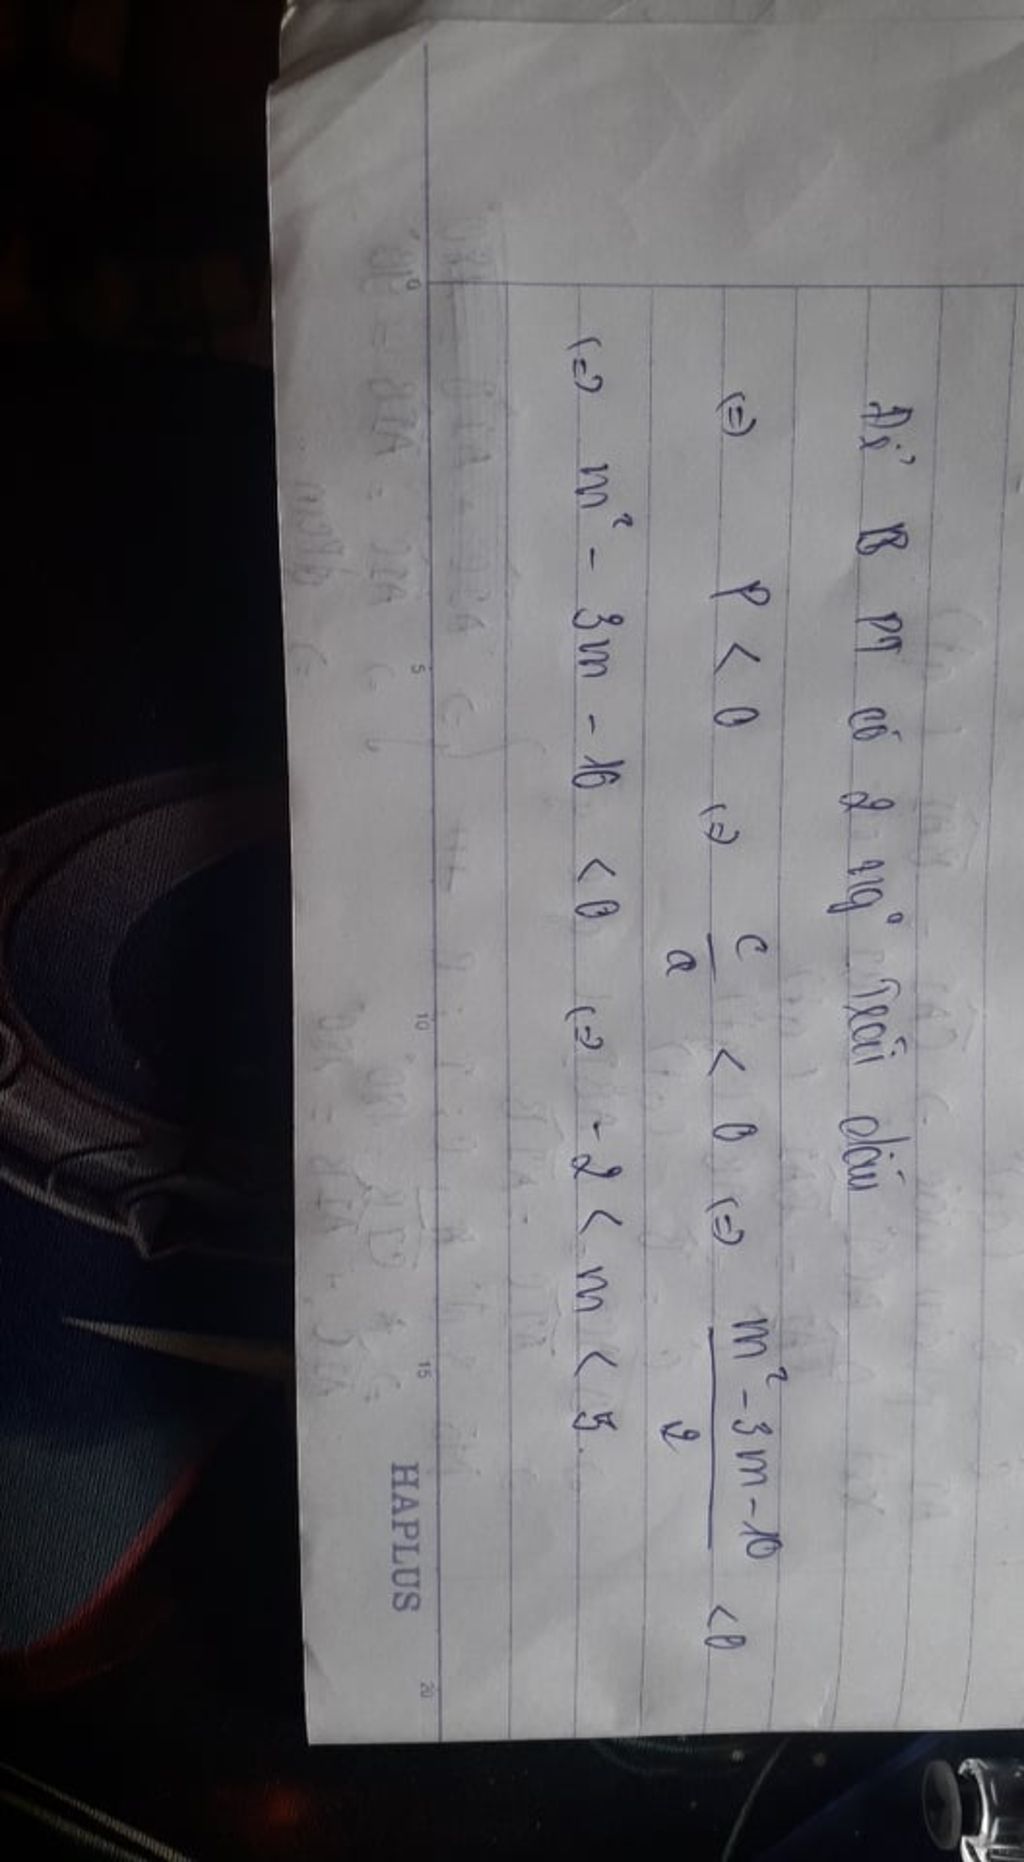 Để B PT có 2 ng° Trái dấu
(=) P < 0 (=) c/a < 0 (=) m² - 3m - 10 / 2 < 0
(=) m² - 3m - 16 < 0 (=) - 2 < m < 5
0 5 10 15 20
HAPLUS